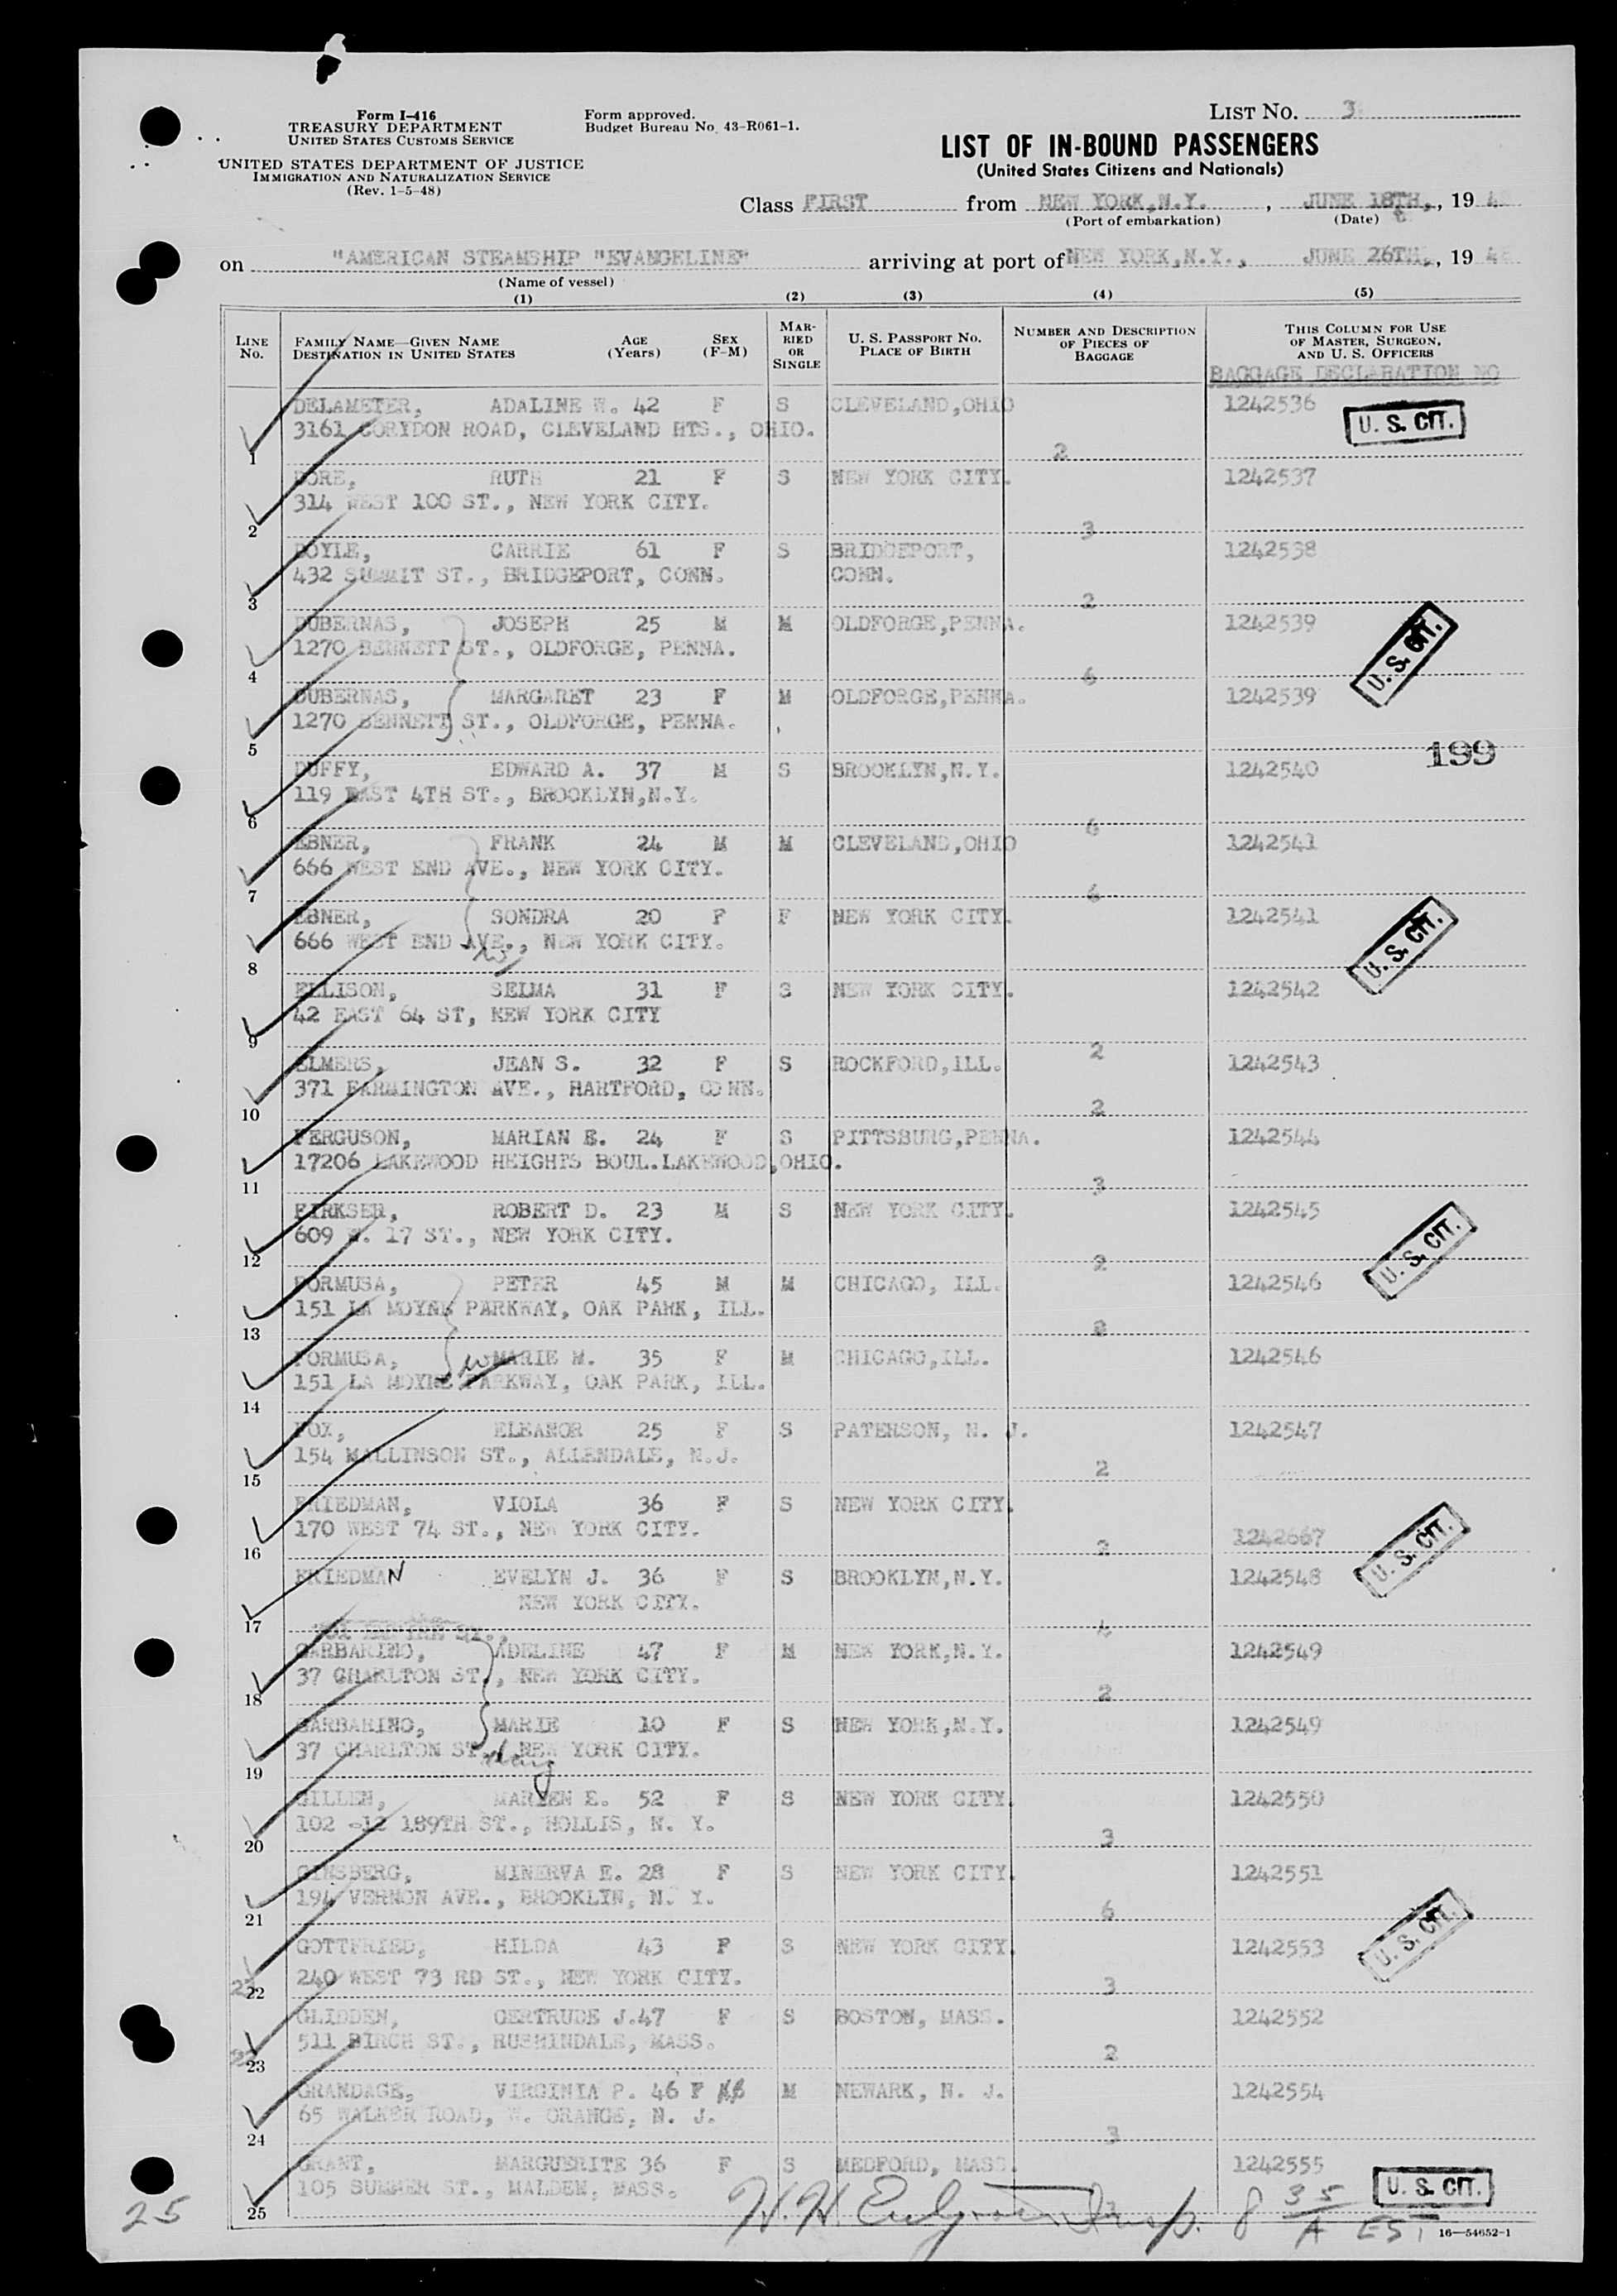 Form I-416
TREASURY DEPARTMENT
UNITED STATES CUSTOMS SERVICE
UNITED STATES DEPARTMENT OF JUSTICE
IMMIGRATION AND NATURALIZATION SERVICE
(Rev. 1-5-48)
Form approved.
Budget Bureau No. 43-R061-1.
LIST NO. 3
LIST OF IN-BOUND PASSENGERS
(United States Citizens and Nationals)
Class FIRST from NEW YORK,N.Y., JUNE 18TH, 194
(Port of embarkation) (Date)
on "AMERICAN STEAMSHIP "EVANGELINE" arriving at port of NEW YORK,N.Y., JUNE 26TH, 194
(Name of vessel)
(1) (2) (3) (4) (5)
LINE NO. FAMILY NAME—GIVEN NAME DESTINATION IN UNITED STATES AGE (Years) SEX (F-M) MARRIED OR SINGLE U. S. PASSPORT NO. PLACE OF BIRTH NUMBER AND DESCRIPTION OF PIECES OF BAGGAGE THIS COLUMN FOR USE OF MASTER, SURGEON, AND U. S. OFFICERS
BAGGAGE DECLARATION NO
DELAMETER, ADALINE W. 42 F S CLEVELAND,OHIO 1242536 U. S. CIT.
3161 CORYDON ROAD, CLEVELAND HTS., OHIO.
1 2
DORE, RUTH 21 F S NEW YORK CITY. 1242537
314 WEST 100 ST., NEW YORK CITY.
2 3
DOYLE, CARRIE 61 F S BRIDGEPORT, 1242538
432 SUMMIT ST., BRIDGEPORT, CONN. CONN.
3 2
DUBERNAS, JOSEPH 25 M M OLDFORGE,PENNA. 1242539 U. S. CIT.
1270 BENNETT ST., OLDFORGE, PENNA.
4 6
DUBERNAS, MARGARET 23 F M OLDFORGE,PENNA. 1242539
1270 BENNETT ST., OLDFORGE, PENNA.
5 199
DUFFY, EDWARD A. 37 M S BROOKLYN,N.Y. 1242540
119 EAST 4TH ST., BROOKLYN,N.Y.
6 6
EBNER, FRANK 24 M M CLEVELAND,OHIO 1242541
666 WEST END AVE., NEW YORK CITY.
7 6
EBNER, SONDRA 20 F F NEW YORK CITY. 1242541 U. S. CIT.
666 WEST END AVE., NEW YORK CITY.
8
ELLISON, SELMA 31 F S NEW YORK CITY. 1242542
42 EAST 64 ST, NEW YORK CITY
9 2
ELMERS, JEAN S. 32 F S ROCKFORD,ILL. 1242543
371 FARMINGTON AVE., HARTFORD, CONN.
10 2
FERGUSON, MARIAN E. 24 F S PITTSBURG,PENNA. 1242544
17206 LAKEWOOD HEIGHTS BOUL.LAKEWOOD,OHIO.
11 3
FIRKSER, ROBERT D. 23 M S NEW YORK CITY. 1242545
609 W. 17 ST., NEW YORK CITY.
12 2 U. S. CIT.
FORMUSA, PETER 45 M M CHICAGO, ILL. 1242546
151 LA MOYNE PARKWAY, OAK PARK, ILL.
13 8
FORMUSA, w MARIE M. 35 F M CHICAGO,ILL. 1242546
151 LA MOYNE PARKWAY, OAK PARK, ILL.
14
FOX, ELEANOR 25 F S PATERSON, N. J. 1242547
154 MALLINSON ST., ALLENDALE, N.J.
15 2
FRIEDMAN, VIOLA 36 F S NEW YORK CITY.
170 WEST 74 ST., NEW YORK CITY. 1242667
16 2 U. S. CIT.
FRIEDMAN EVELYN J. 36 F S BROOKLYN,N.Y. 1242548
NEW YORK CITY.
17 4
GARBARINO, ADELINE 47 F M NEW YORK,N.Y. 1242549
37 CHARLTON ST., NEW YORK CITY.
18 2
GARBARINO, MARIE 10 F S NEW YORK,N.Y. 1242549
37 CHARLTON ST., NEW YORK CITY.
19
GILLEN, MARIEN E. 52 F S NEW YORK CITY. 1242550
102 -12 189TH ST., HOLLIS, N. Y.
20 3
GINSBERG, MINERVA E. 28 F S NEW YORK CITY. 1242551
194 VERNON AVE., BROOKLYN, N. Y.
21 6
GOTTFRIED, HILDA 43 F S NEW YORK CITY. 1242553 U. S. CIT.
240 WEST 73 RD ST., NEW YORK CITY.
22 3
GLIDDEN, GERTRUDE J.47 F S BOSTON, MASS. 1242552
511 BIRCH ST., RUSHINDALE, MASS.
23 2
GRANDAGE, VIRGINIA P. 46 F M NEWARK, N. J. 1242554
65 WALKER ROAD, W. ORANGE, N. J.
24 3
GRANT, MARGUERITE 36 F S MEDFORD, MASS. 1242555
105 SUMMER ST., MALDEN, MASS. U. S. CIT.
25
25 H.H. Insp. 8 35 A EST
16—54652-1